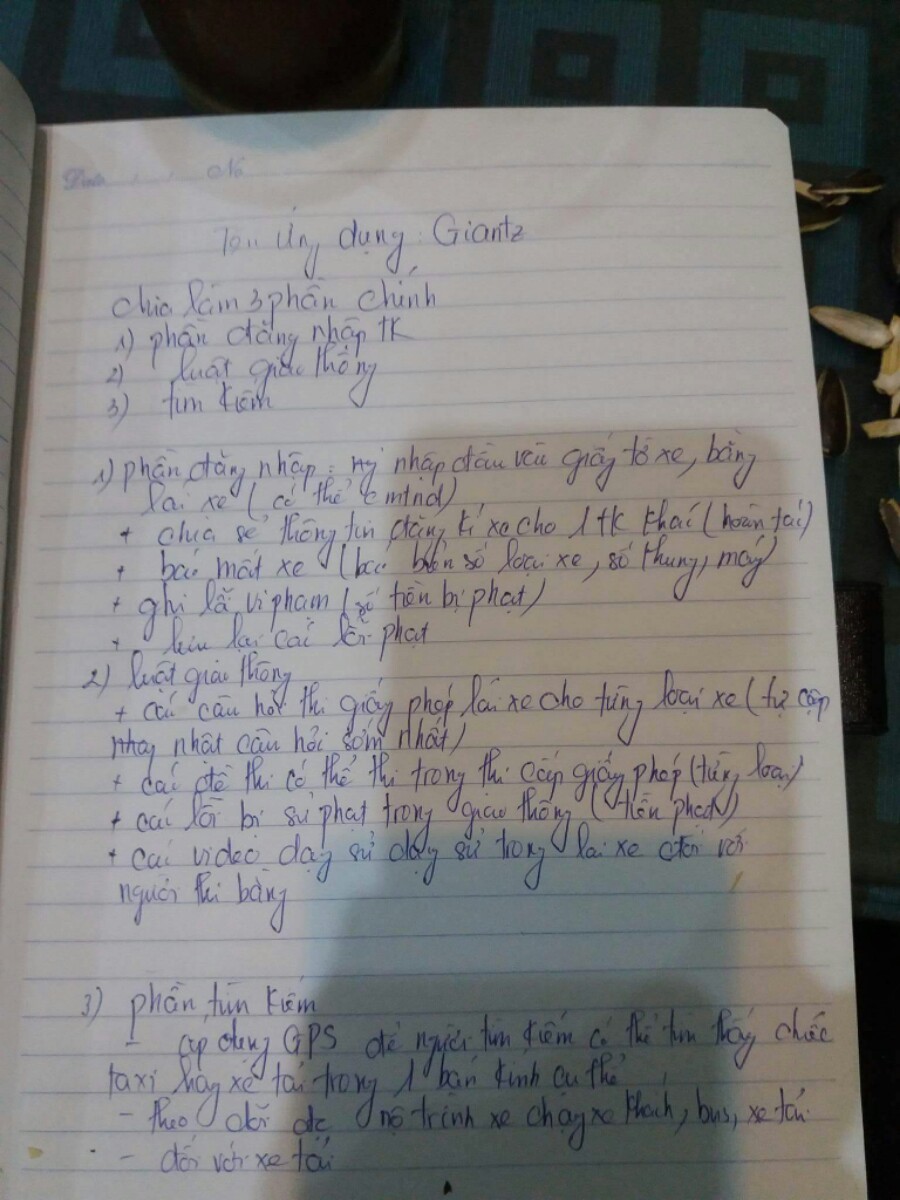 Date No
Tên Ứng dụng: Giantz
chia làm 3 phần chính
1) phần đăng nhập tk
2) luật giao thông
3) tìm kiếm
1) phần đăng nhập: nhập đầu vào giấy tờ xe, bằng
lái xe (có thể cmtnd)
+ chia sẻ thông tin đăng kí xe cho 1 tk khác (hoàn tác)
+ báo mất xe (báo biển số loại xe, số khung, máy)
+ ghi lỗi vi phạm (số tiền bị phạt)
+ lưu lại các lỗi phạt
2) luật giao thông
+ các câu hỏi thi giấy phép lái xe cho từng loại xe (tự cập
nhật câu hỏi sớm nhất)
+ các đề thi có thể thi trong thi cấp giấy phép (từng loại)
+ các lỗi bị sử phạt trong giao thông (tiền phạt)
+ các video dạy sử dạy sử trong lái xe đối với
người thi bằng
3) phần tìm kiếm
- áp dụng GPS để người tìm kiếm có thể tìm thấy chiếc
taxi hay xe tải trong 1 bán kính cụ thể
- theo dõi lộ trình xe chạy xe khách, bus, xe tải
- đối với xe tải